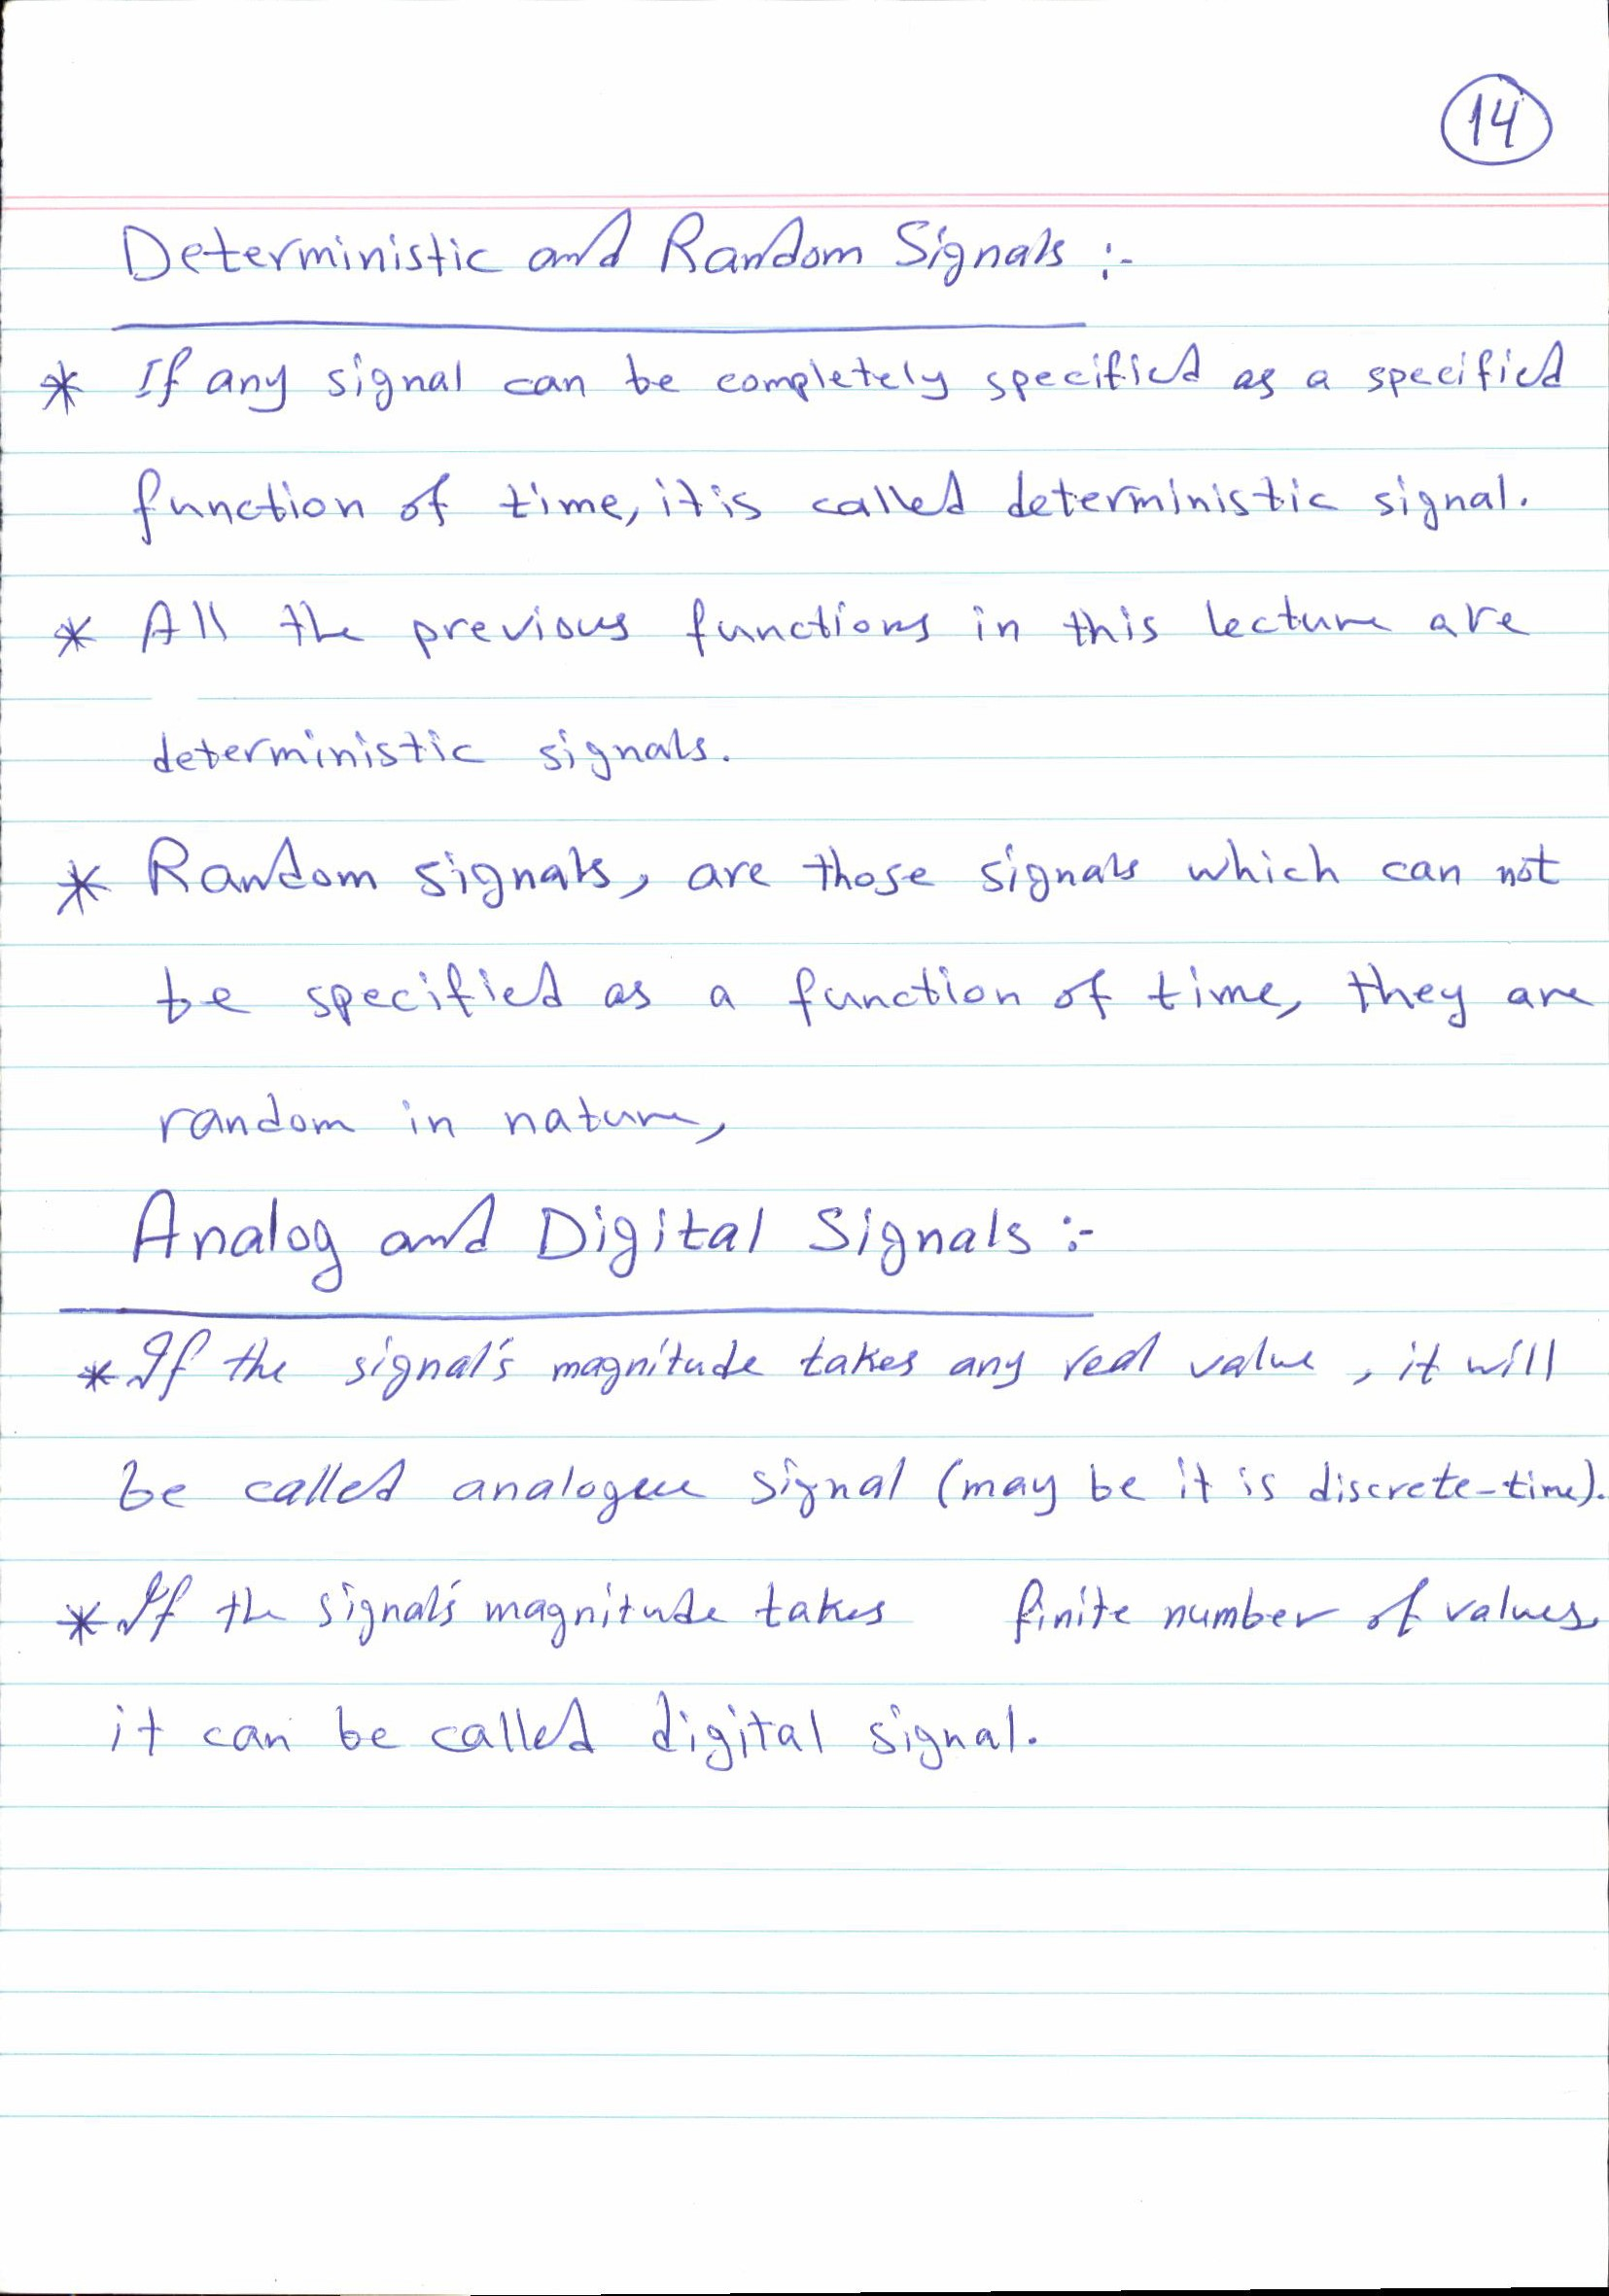 14
Deterministic and Random Signals :-
* If any signal can be completely specified as a specified
function of time, it is called deterministic signal.
* All the previous functions in this lecture are
deterministic signals.
* Random signals, are those signals which can not
be specified as a function of time, they are
random in nature,
Analog and Digital Signals :-
* If the signal's magnitude takes any real value, it will
be called analogue signal (may be it is discrete-time).
* If the signal's magnitude takes finite number of values,
it can be called digital signal.